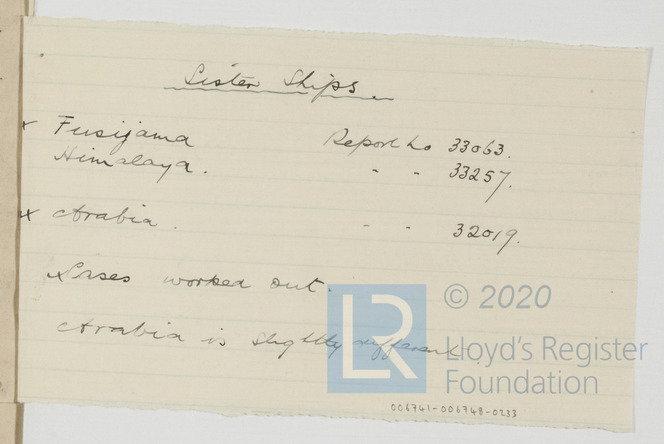 Sister Ships.
x Fusijama Report No 33063.
Himalaya. " " 33257.
x Arabia. " " 32019.
x Cases worked out.
Arabia is slightly different.
LR © 2020
Lloyd's Register
Foundation
006741-006748-0233